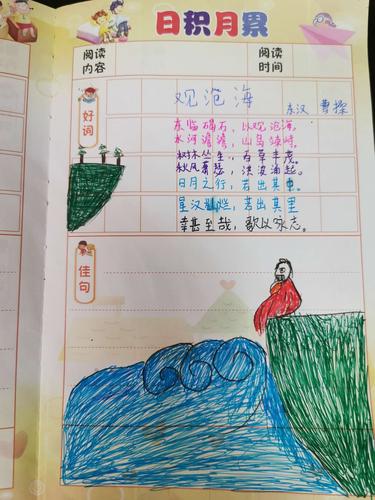 日积月累
阅读内容
阅读时间
观沧海
东汉 曹操
好词
东临碣石，以观沧海。
水河澹澹，山岛竦峙。
树林丛生，百草丰茂。
秋风萧瑟，洪波涌起。
日月之行，若出其中。
星汉灿烂，若出其里
幸甚至哉，歌以咏志。
佳句